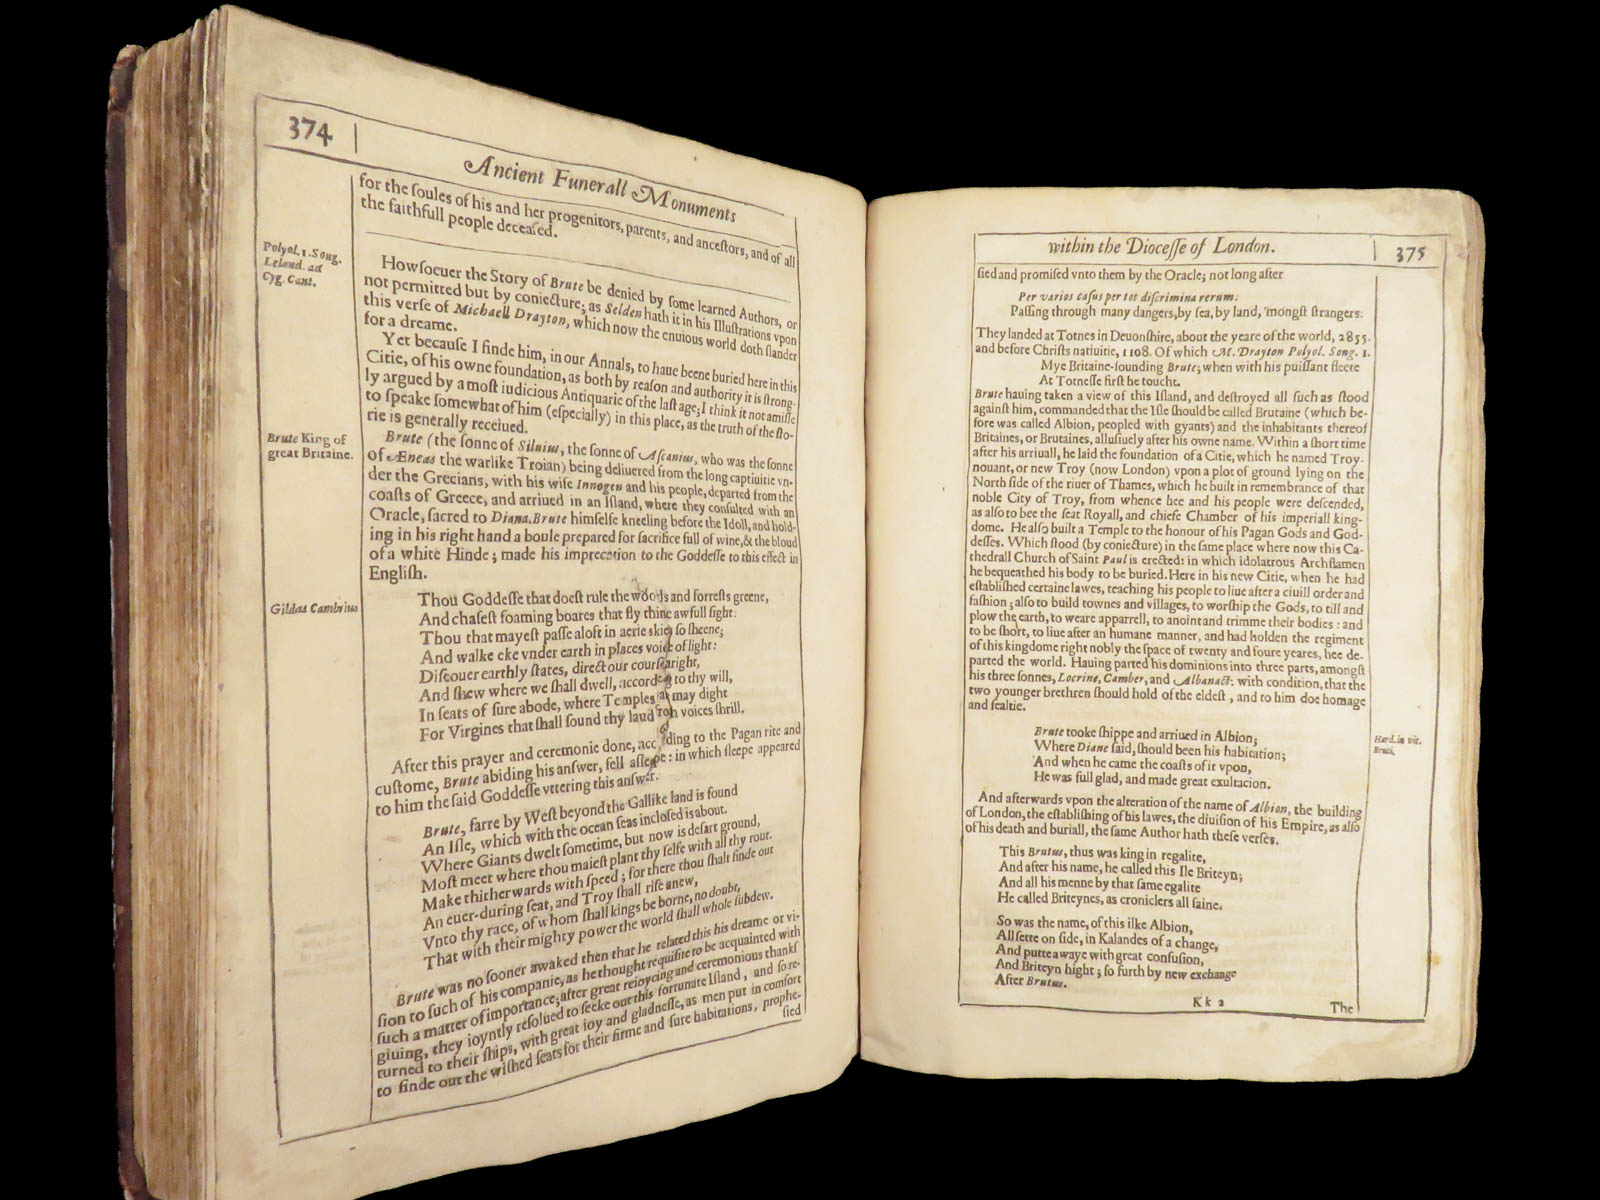 374
Ancient Funerall Monuments
for the ſoules of his and her progenitors, parents, and anceſtors, and of all
the faithfull people deceaſed.
Polyol. 1. Song.
Leland. ad
Cyg. Cant.
Howſoeuer the Story of Brute be denied by ſome learned Authors, or
not permitted but by coniecture; as Selden hath it in his Illuſtrations vpon
this verſe of Michaell Drayton, which now the enuious world doth ſlander
for a dreame.
Yet becauſe I finde him, in our Annals, to haue beene buried here in this
Citie, of his owne foundation, as both by reaſon and authority it is ſtrong-
ly argued by a moſt iudicious Antiquarie of the laſt age; I think it not amiſſe
to ſpeake ſomewhat of him (eſpecially) in this place, as the truth of the ſto-
rie is generally receiued.
Brute King of
great Britaine.
Brute (the ſonne of Siluius, the ſonne of Aſcanius, who was the ſonne
of Æneas the warlike Troian) being deliuered from the long captiuitie vn-
der the Grecians, with his wife Innogen and his people, departed from the
coaſts of Greece, and arriued in an Iſland, where they conſulted with an
Oracle, ſacred to Diana. Brute himſelfe kneeling before the Idoll, and hold-
ing in his right hand a boule prepared for ſacrifice full of wine, & the bloud
of a white Hinde; made his imprecation to the Goddeſſe to this effect in
Engliſh.
Gildas Cambrius
Thou Goddeſſe that doeſt rule the woods and forreſts greene,
And chaſeſt foaming boares that fly thine awfull ſight.
Thou that mayeſt paſſe aloft in aerie skies ſo ſheene;
And walke eke vnder earth in places voide of light:
Diſcouer earthly ſtates, direct our courſe aright,
And ſhew where we ſhall dwell, according to thy will,
In ſeats of ſure abode, where Temples we may dight
For Virgines that ſhall ſound thy laud with voices ſhrill.
After this prayer and ceremonie done, according to the Pagan rite and
cuſtome, Brute abiding his anſwer, fell aſleepe: in which ſleepe appeared
to him the ſaid Goddeſſe vttering this anſwer.
Brute, farre by Weſt beyond the Gallike land is found
An Iſle, which with the ocean ſeas incloſed is about.
Where Giants dwelt ſometime, but now is deſart ground,
Moſt meet where thou maieſt plant thy ſelfe with all thy rout.
Make thitherwards with ſpeed; for there thou ſhalt finde out
An euer-during ſeat, and Troy ſhall riſe anew,
Vnto thy race, of whom ſhall kings be borne, no doubt,
That with their mighty power the world ſhall whole ſubdew.
Brute was no ſooner awaked then that he related this his dreame or vi-
ſion to ſuch of his companie, as he thought requiſite to be acquainted with
ſuch a matter of importance; after great reioycing and ceremonious thankſ
giuing, they ioyntly reſolued to ſeeke out this fortunate Iſland, and ſo re-
turned to their ſhips, with great ioy and gladneſſe, as men put in comfort
to finde out the wiſhed ſeats for their firme and ſure habitations, prophe-
ſied
within the Dioceſſe of London.
375
ſied and promiſed vnto them by the Oracle; not long after
Per varios caſus per tot diſcrimina rerum:
Paſſing through many dangers, by ſea, by land, 'mongſt ſtrangers.
They landed at Totnes in Deuonſhire, about the yeare of the world, 2855.
and before Chriſts natiuitie, 1108. Of which M. Drayton Polyol. Song. 1.
Mye Britaine-founding Brute; when with his puiſſant fleete
At Totneſſe firſt he toucht.
Brute hauing taken a view of this Iſland, and deſtroyed all ſuch as ſtood
againſt him, commanded that the Iſle ſhould be called Brutaine (which be-
fore was called Albion, peopled with gyants) and the inhabitants thereof
Britaines, or Brutaines, alluſiuely after his owne name. Within a ſhort time
after his arriuall, he laid the foundation of a Citie, which he named Troy-
nouant, or new Troy (now London) vpon a plot of ground lying on the
North ſide of the riuer of Thames, which he built in remembrance of that
noble City of Troy, from whence hee and his people were deſcended,
as alſo to bee the ſeat Royall, and chiefe Chamber of his imperiall king-
dome. He alſo built a Temple to the honour of his Pagan Gods and God-
deſſes. Which ſtood (by coniecture) in the ſame place where now this Ca-
thedrall Church of Saint Paul is erected: in which idolatrous Archflamen
he bequeathed his body to be buried. Here in his new Citie, when he had
eſtabliſhed certaine lawes, teaching his people to liue after a ciuill order and
faſhion; alſo to build townes and villages, to worſhip the Gods, to till and
plow the earth, to weare apparrell, to anoint and trimme their bodies: and
to be ſhort, to liue after an humane manner, and had holden the regiment
of this kingdome right nobly the ſpace of twenty and foure yeares, hee de-
parted the world. Hauing parted his dominions into three parts, amongſt
his three ſonnes, Locrine, Camber, and Albanact: with condition, that the
two younger brethren ſhould hold of the eldeſt, and to him doe homage
and fealtie.
Hard. in vit.
Bruti.
Brute tooke ſhippe and arriued in Albion;
Where Diane ſaid, ſhould been his habitation;
And when he came the coaſts of it vpon,
He was full glad, and made great exultacion.
And afterwards vpon the alteration of the name of Albion, the building
of London, the eſtabliſhing of his lawes, the diuiſion of his Empire, as alſo
of his death and buriall, the ſame Author hath theſe verſes.
This Brutus, thus was king in regalite,
And after his name, he called this Ile Briteyn;
And all his menne by that ſame egalite
He called Briteynes, as croniclers all ſaine.
So was the name, of this ilke Albion,
All ſette on ſide, in Kalandes of a change,
And putte awaye with great confuſion,
And Briteyn hight; ſo furth by new exchange
After Brutus.
Kk 2
The